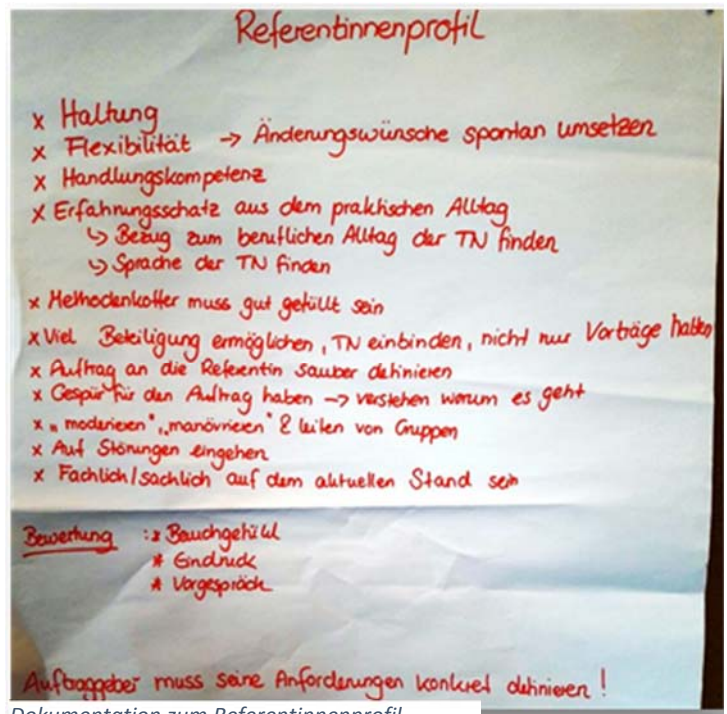 Referentinnenprofil
x Haltung
x Flexibilität → Änderungswünsche spontan umsetzen
x Handlungskompetenz
x Erfahrungsschatz aus dem praktischen Alltag
↳ Bezug zum beruflichen Alltag der TN finden
↳ Sprache der TN finden
x Methodenkoffer muss gut gefüllt sein
x Viel Beteiligung ermöglichen, TN einbinden, nicht nur Vorträge halten
x Auftrag an die Referentin sauber definieren
x Gespür für den Auftrag haben → verstehen worum es geht
x „moderieren", „manövrieren" & leiten von Gruppen
x Auf Störungen eingehen
x Fachlich/sachlich auf dem aktuellen Stand sein
Bewertung : x Bauchgefühl
x Eindruck
x Vorgespräch
Auftraggeber muss seine Anforderungen konkret definieren !
Dokumentation zum Referentinnenprofil